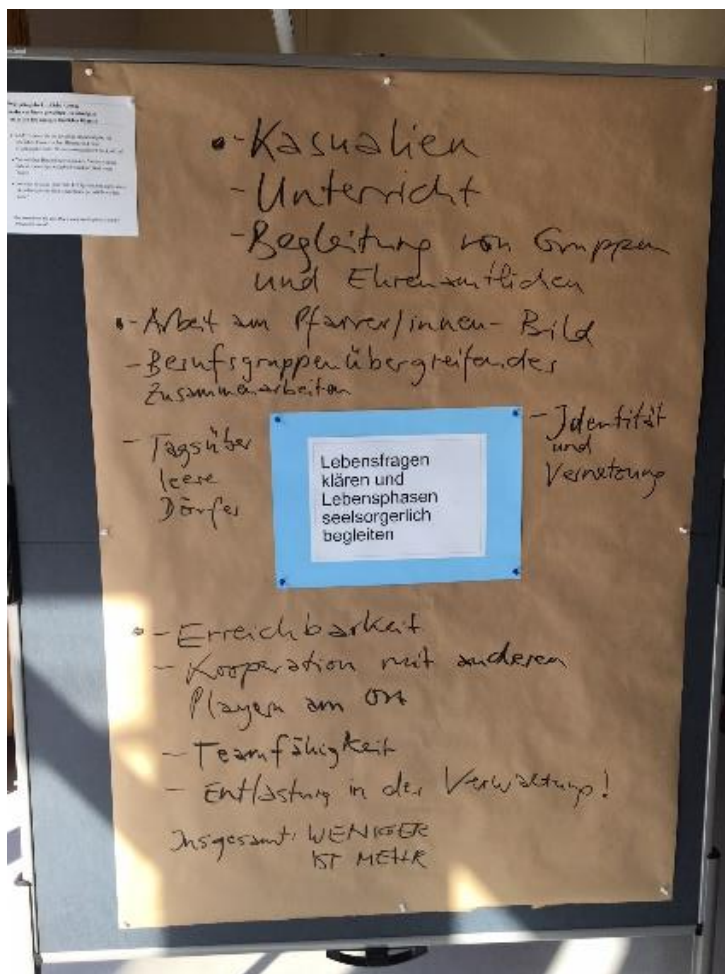 • - Kasualien
- Unterricht
- Begleitung von Gruppen
und Ehrenamtlichen
• - Arbeit am Pfarrer/innen-Bild
- Berufsgruppenübergreifendes
Zusammenarbeiten
- Tagsüber
leere
Dörfer
Lebensfragen
klären und
Lebensphasen
seelsorgerlich
begleiten
- Identität
und
Vernetzung
• - Erreichbarkeit
- Kooperation mit anderen
Playern am Ort
- Teamfähigkeit
- Entlastung in der Verwaltung!
Insgesamt: WENIGER
IST MEHR